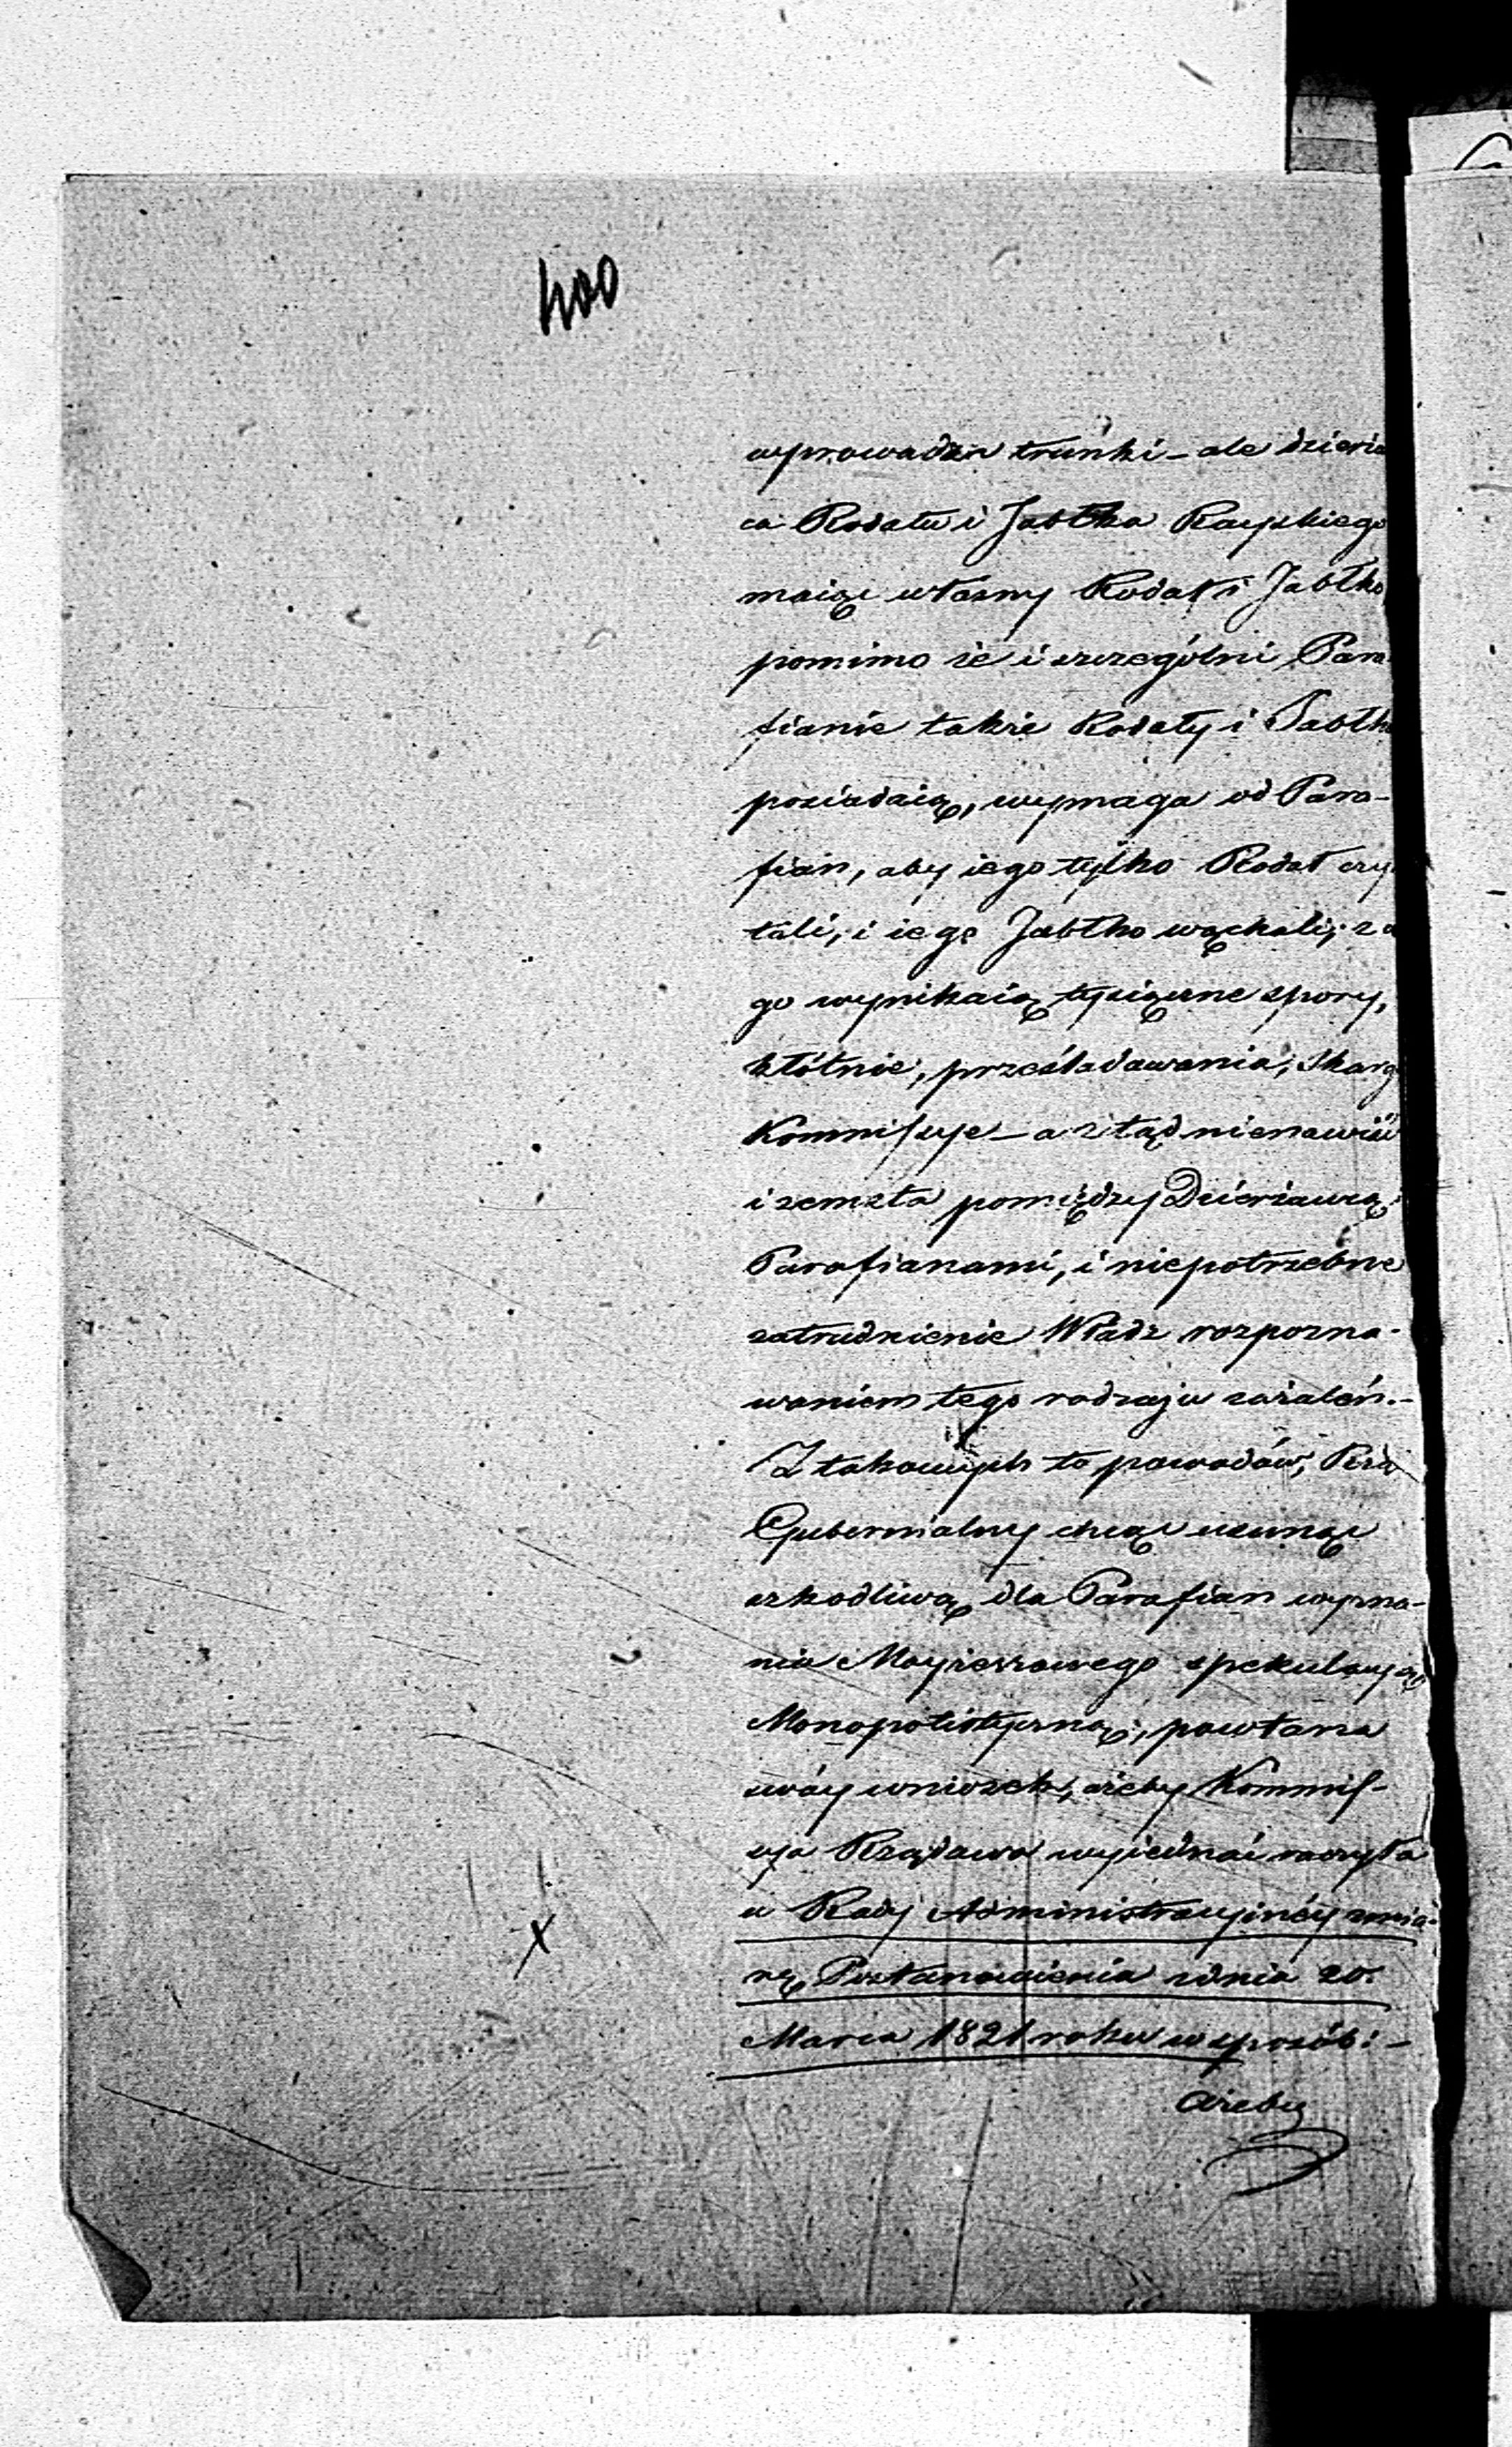 400
wyprowadza trunki – ale dzierża
ca Rodału i Jabłka Rayskiego
maiąc własny Rodał i Jabłko
pomimo że i szczególni Para
fianie także Rodały i Jabłk
posiadaią, wymaga od Para-
fian, aby iego tylko Rodał czy
tali, i iego Jabłko wąchali; z
go wynikaią tysiączne spory,
kłótnie, prześladowania, skarg
Kommissye – a ztąd nienawiść
i zemsta pomiędzy Dzierżawcą
Parafianami, i niepotrzebne
zatrudnienie Władz rozpozna-
waniem tego rodzaju zażaleń.–
Z takowych to powodów, Rzą
Gubernialny chcąc usunąć
szkodliwą dla Parafian wyzna-
nia Mojżeszowego spekulacyą
Monopolistyczną, powtarza
swóy wniosek, ażeby Kommis-
sya Rządowa wyjednać raczyła
u Rady Administracyinéy zmia-
nę Postanowienia z dnia 20.
Marca 1821 roku w sposób: –
ażeby
X